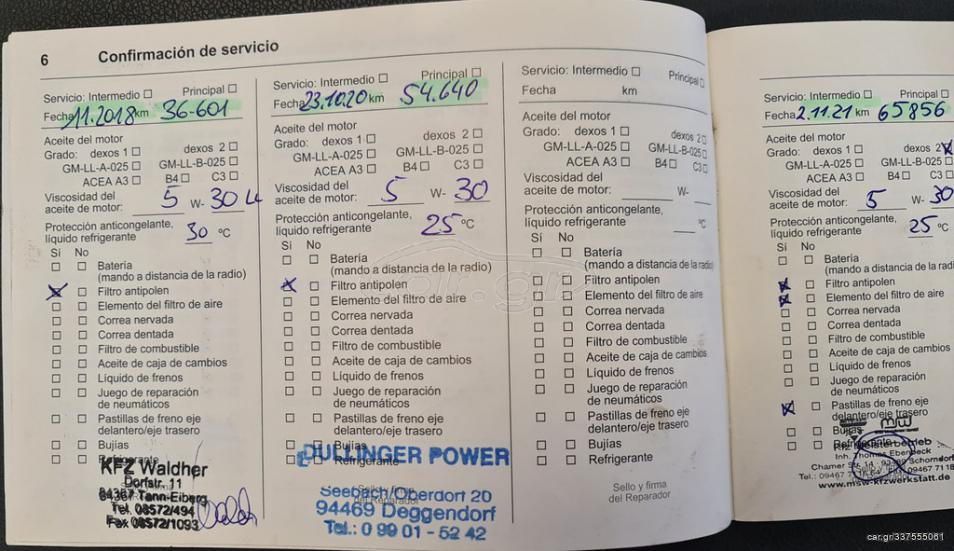 6 Confirmación de servicio
Servicio: Intermedio Principal
Fecha 11.2018 km 36-601
Aceite del motor
Grado: dexos 1 dexos 2
GM-LL-A-025 GM-LL-B-025
ACEA A3 B4 C3
Viscosidad del
aceite de motor: 5 W- 30
Protección anticongelante,
líquido refrigerante 30 °C
Sí No
Batería
(mando a distancia de la radio)
X Filtro antipolen
Elemento del filtro de aire
Correa nervada
Correa dentada
Filtro de combustible
Aceite de caja de cambios
Líquido de frenos
Juego de reparación
de neumáticos
Pastillas de freno eje
delantero/eje trasero
Bujías
Refrigerante
KFZ Waldher
Dorfstr. 11
84367 Tann-Eiberg
Tel. 08572/494
Fax 08572/1093
Servicio: Intermedio Principal
Fecha 23.10.20 km 54.640
Aceite del motor
Grado: dexos 1 dexos 2
GM-LL-A-025 GM-LL-B-025
ACEA A3 B4 C3
Viscosidad del
aceite de motor: 5 W- 30
Protección anticongelante,
líquido refrigerante 25 °C
Sí No
Batería
(mando a distancia de la radio)
X Filtro antipolen
Elemento del filtro de aire
Correa nervada
Correa dentada
Filtro de combustible
Aceite de caja de cambios
Líquido de frenos
Juego de reparación
de neumáticos
Pastillas de freno eje
delantero/eje trasero
Bujías
Refrigerante
DULLINGER POWER
Sello y firma
del Reparador
Seebach/Oberdorf 20
94469 Deggendorf
Tel.: 0 99 01 - 52 42
Servicio: Intermedio Principal
Fecha km
Aceite del motor
Grado: dexos 1 dexos 2
GM-LL-A-025 GM-LL-B-025
ACEA A3 B4 C3
Viscosidad del
aceite de motor: W-
Protección anticongelante,
líquido refrigerante °C
Sí No
Batería
(mando a distancia de la radio)
Filtro antipolen
Elemento del filtro de aire
Correa nervada
Correa dentada
Filtro de combustible
Aceite de caja de cambios
Líquido de frenos
Juego de reparación
de neumáticos
Pastillas de freno eje
delantero/eje trasero
Bujías
Refrigerante
Sello y firma
del Reparador
Servicio: Intermedio Principal
Fecha 2.11.21 km 65856
Aceite del motor
Grado: dexos 1 dexos 2 X
GM-LL-A-025 GM-LL-B-025
ACEA A3 B4 C3
Viscosidad del
aceite de motor: 5 W- 30
Protección anticongelante,
líquido refrigerante 25 °C
Sí No
Batería
(mando a distancia de la radi
X Filtro antipolen
X Elemento del filtro de aire
Correa nervada
Correa dentada
Filtro de combustible
Aceite de caja de cambios
Líquido de frenos
Juego de reparación
de neumáticos
X Pastillas de freno eje
delantero/eje trasero
Bujías
Refrigerante
Inh. Thomas
www.msw-kfzwerkstatt.de
car.gr
car.gr/337555061